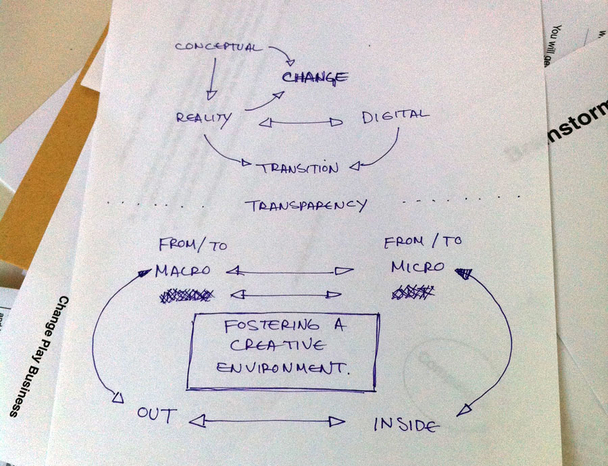 CONCEPTUAL
CHANGE
REALITY
DIGITAL
TRANSITION
TRANSPARENCY
FROM/TO
FROM/TO
MACRO
MICRO
FOSTERING A
CREATIVE
ENVIRONMENT.
OUT
INSIDE
Change Play Business
You will